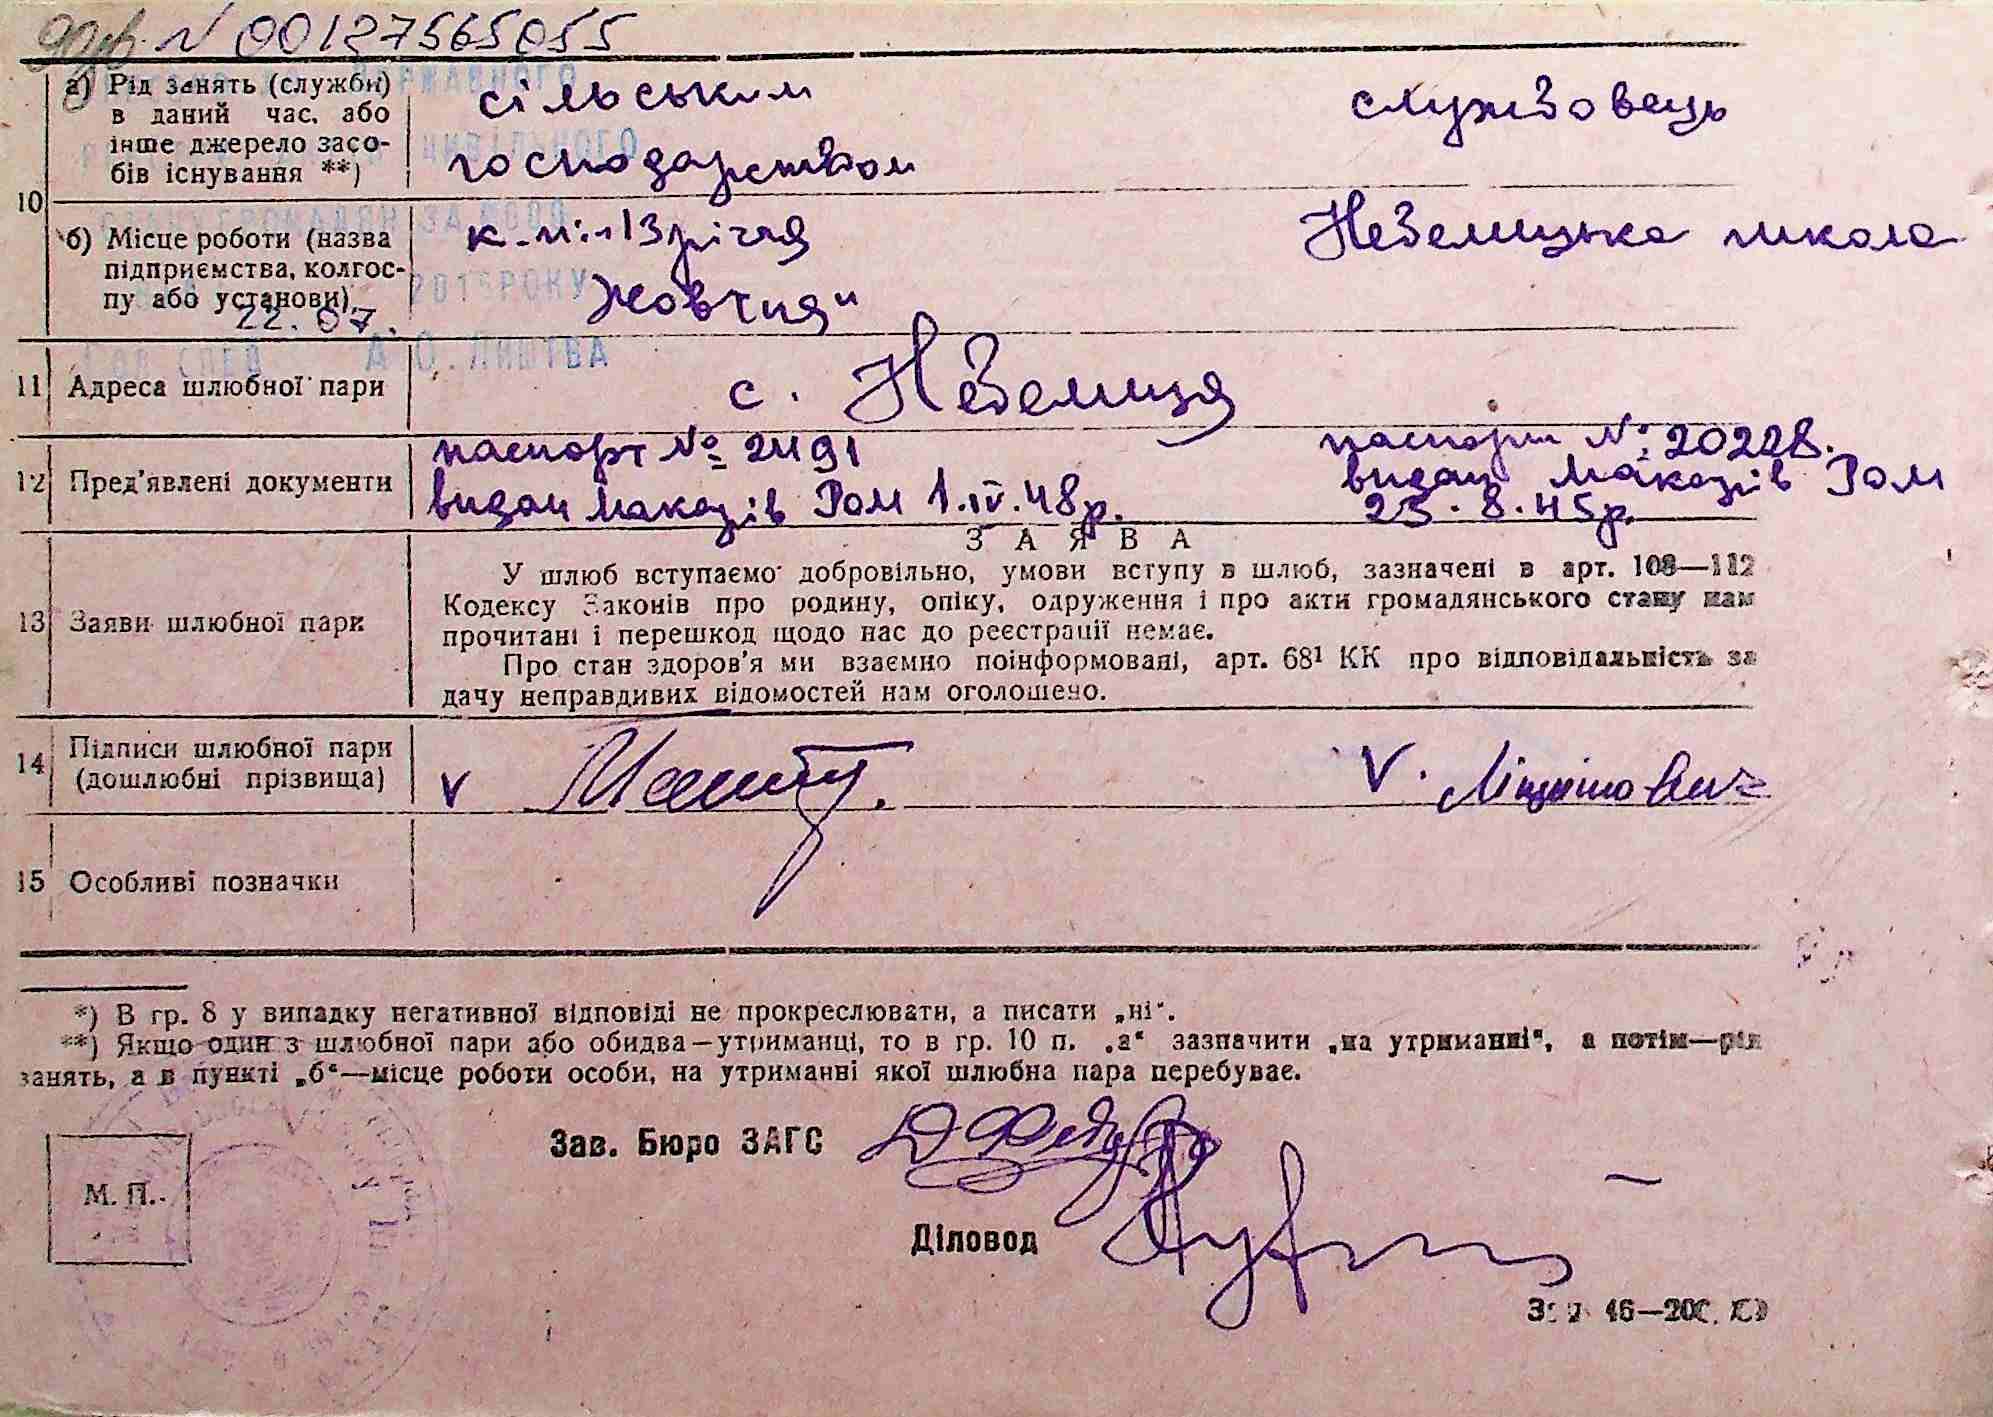 N 00127565055
а) Рід занять (служби) в даний час, або інше джерело засобів існування **)
сільським
господарством
службовець
10
б) Місце роботи (назва підприємства, колгоспу або установи)
к-п "13 річчя
Жовтня"
Небелицька школа
2015 РОКУ
22.07.
А.О. ЛИШТВА
11 Адреса шлюбної пари
с. Небелиця
12 Пред'явлені документи
паспорт № 2491
видан Макарів РОМ 1.IV.48р.
паспорт №: 20228.
видан Макарів РОМ
23.8.45р.
13 Заяви шлюбної пари
ЗАЯВА
У шлюб вступаємо добровільно, умови вступу в шлюб, зазначені в арт. 108—112
Кодексу Законів про родину, опіку, одруження і про акти громадянського стану нам
прочитані і перешкод щодо нас до реєстрації немає.
Про стан здоров'я ми взаємно поінформовані, арт. 68¹ КК про відповідальність за
дачу неправдивих відомостей нам оголошено.
14 Підписи шлюбної пари (дошлюбні прізвища)
V
V.
15 Особливі позначки
*) В гр. 8 у випадку негативної відповіді не прокреслювати, а писати „ні".
**) Якщо один з шлюбної пари або обидва—утриманці, то в гр. 10 п. „а" зазначити „на утриманні", а потім—рід
занять, а в пункті „б"—місце роботи особи, на утриманні якої шлюбна пара перебуває.
Зав. Бюро ЗАГС
М. П.
Діловод